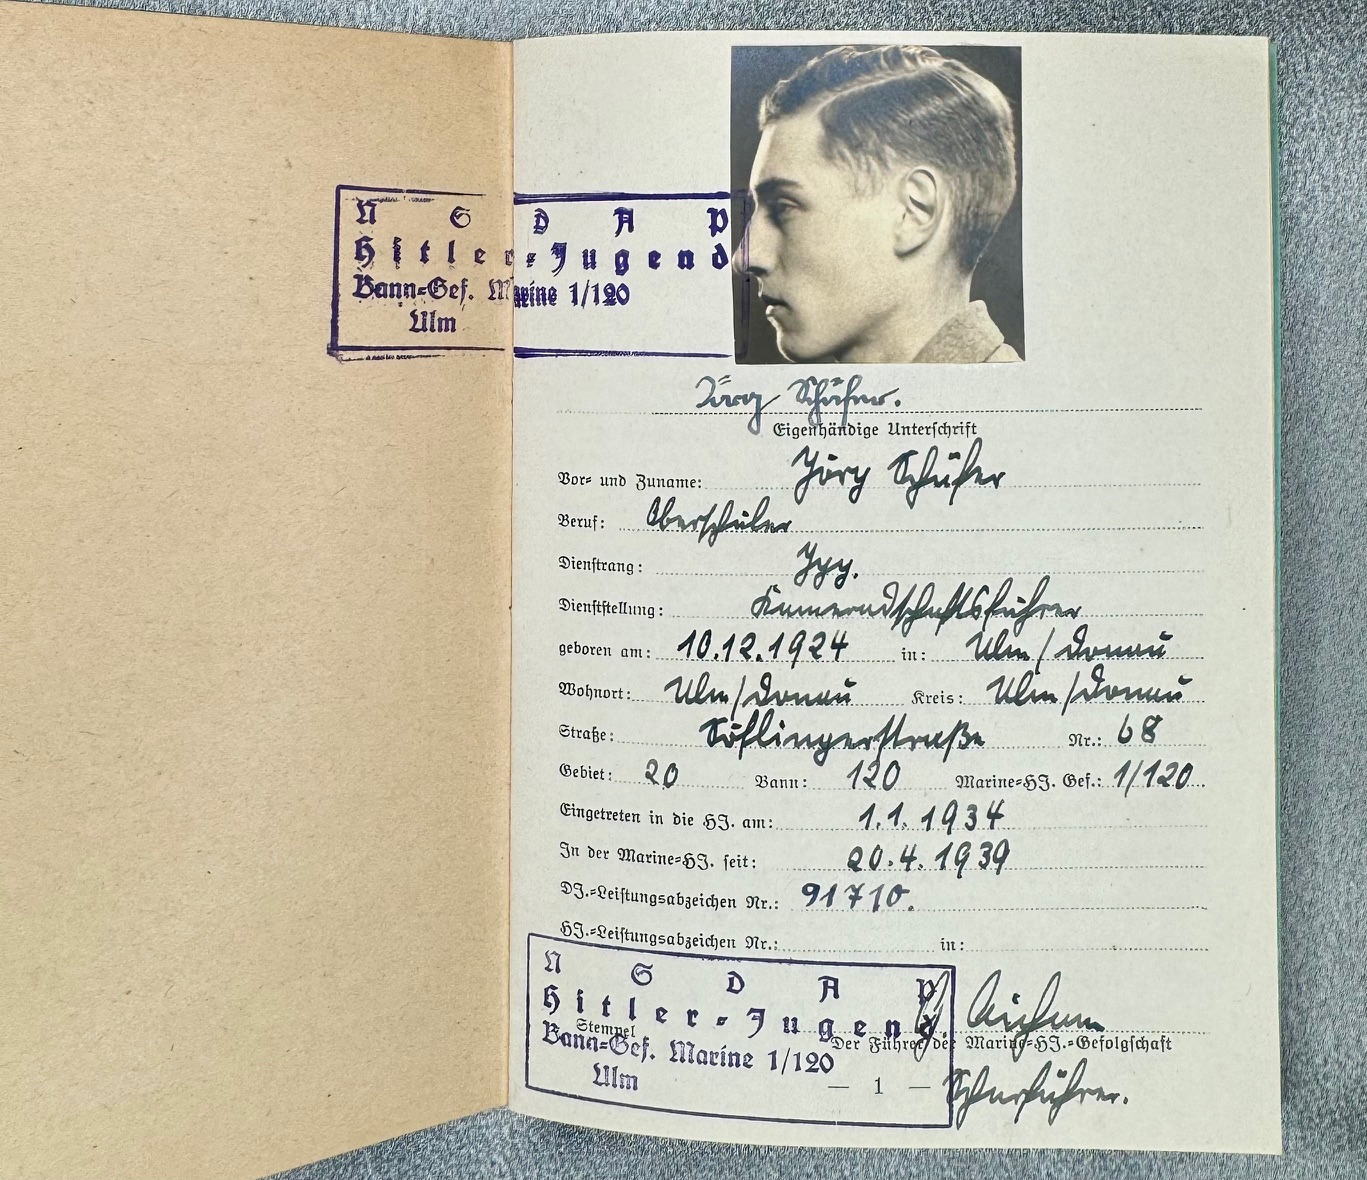 N S D A P
Hitler-Jugend
Bann-Gef. Marine 1/120
Ulm
Jörg Schäfer.
Eigenhändige Unterschrift
Vor- und Zuname: Jörg Schäfer
Beruf: Oberschüler
Dienstrang: Jgg.
Dienststellung: Kameradschaftsführer
geboren am: 10.12.1924 in: Ulm/Donau
Wohnort: Ulm/Donau Kreis: Ulm/Donau
Straße: Söflingerstraße Nr.: 68
Gebiet: 20 Bann: 120 Marine-HJ. Gef.: 1/120
Eingetreten in die HJ. am: 1.1.1934
In der Marine-HJ. seit: 20.4.1939
DJ.-Leistungsabzeichen Nr.: 91710.
HJ.-Leistungsabzeichen Nr.: in:
N S D A P
Hitler-Jugend
Stempel
Bann-Gef. Marine 1/120
Ulm
Der Führer der Marine-HJ.-Gefolgschaft
— 1 —
Scharführer.